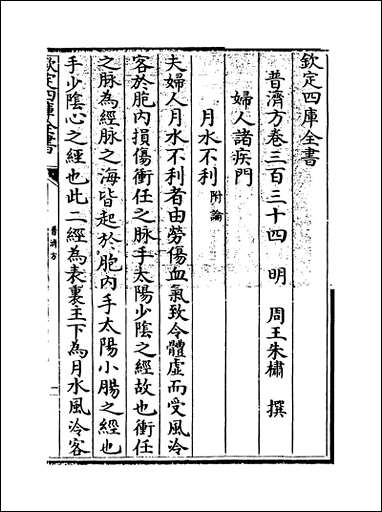 欽定四庫全書
普濟方卷三百三十四 明 周王朱橚 撰
婦人諸疾門
月水不利附論
夫婦人月水不利者由勞傷血氣致令體虛而受風冷
客於胞内損傷衝任之脉手太陽少陰之經故也衝任
之脉為經脉之海皆起於胞内手太陽小腸之經也
手少陰心之經也此二經為表裏主下為月水風冷客
欽定四庫全書
普濟方